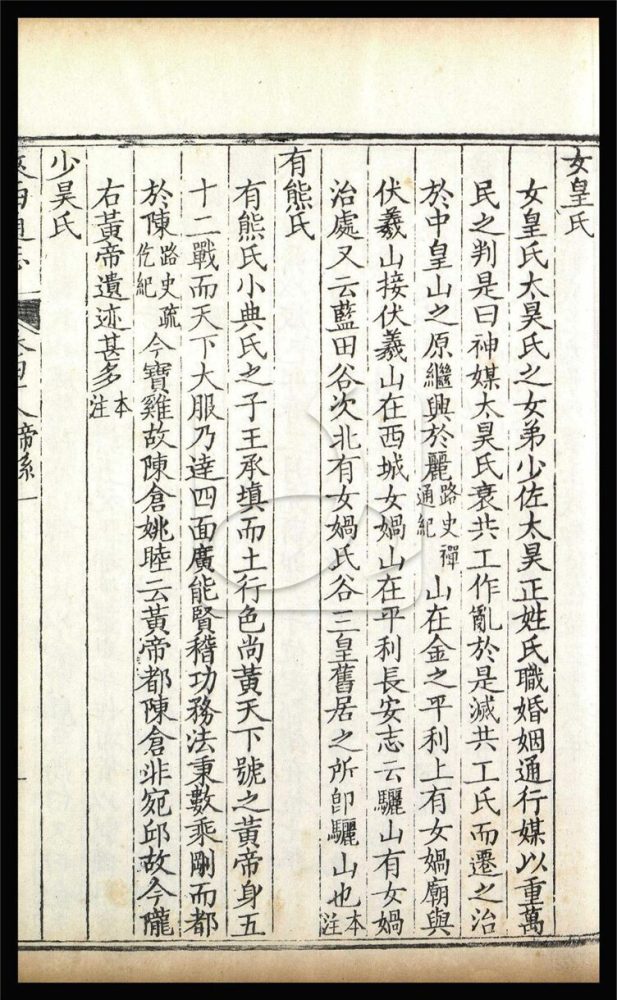 女皇氏
女皇氏太昊氏之女弟少佐太昊正姓氏職婚姻通行媒以重萬
民之判是曰神媒太昊氏衰共工作亂於是滅共工氏而遷之治
於中皇山之原繼興於麗路史禪通紀山在金之平利上有女媧廟與
伏羲山接伏羲山在西城女媧山在平利長安志云驪山有女媧
治處又云藍田谷次北有女媧氏谷三皇舊居之所卽驪山也本注
有熊氏
有熊氏小典氏之子王承填而土行色尚黃天下號之黃帝身五
十二戰而天下大服乃達四面廣能賢稽功務法秉數乘剛而都
於陳路史疏仡紀今寶雞故陳倉姚睦云黃帝都陳倉非宛邱故今隴
右黃帝遺迹甚多本注
少昊氏
陝西通志 卷四十八 帝系 一